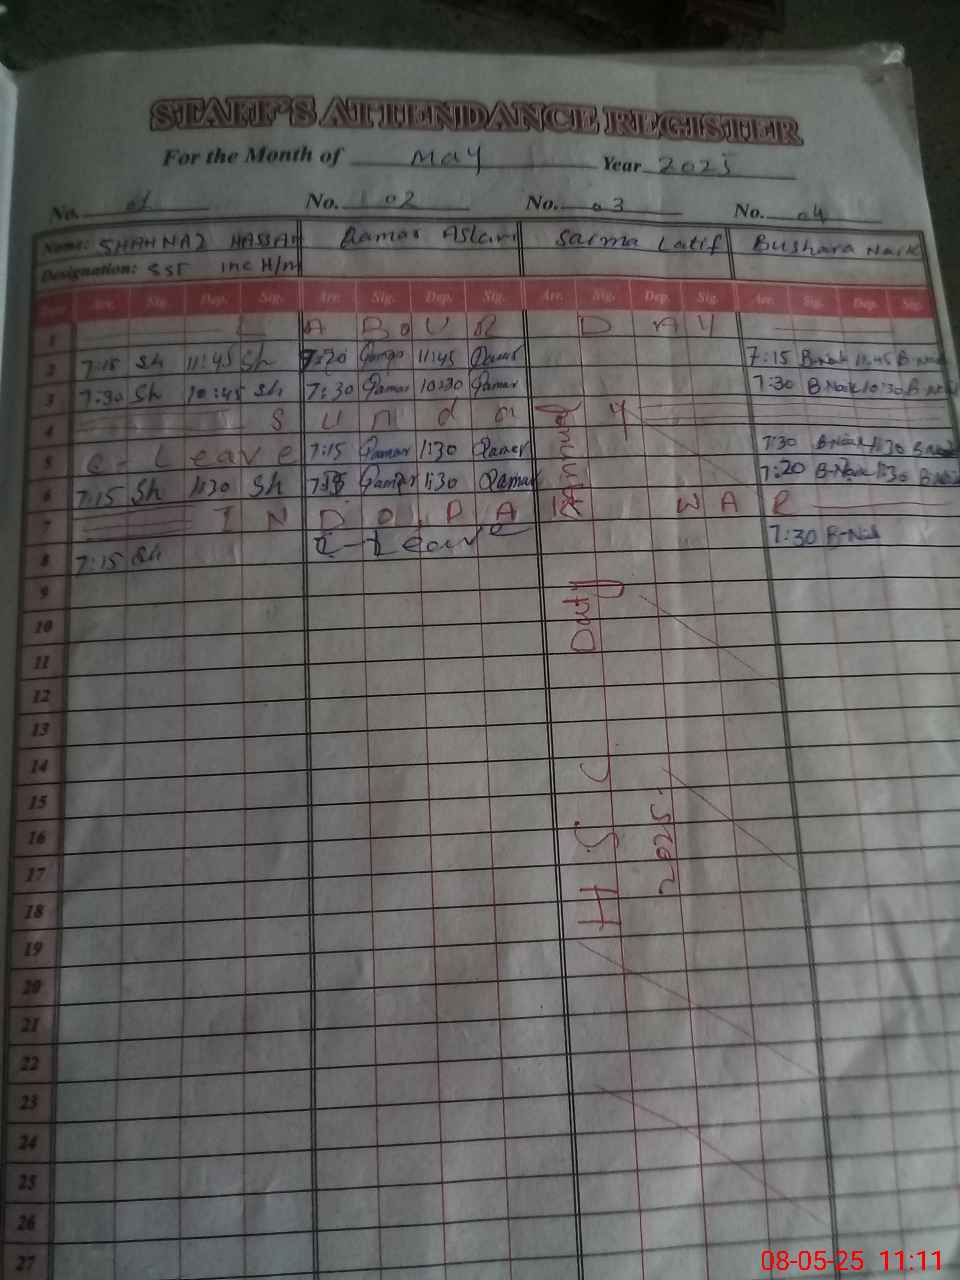 STAFF'S ATTENDANCE REGISTER
For the Month of May Year 2025
No. 01 No. 02 No. 03 No. 04
Name: SHAHNAZ HASSAN Qamar Aslam Saima Latif Bushara Naik
Designation: SST Inc H/m
Arr. Sig. Dep. Sig. Arr. Sig. Dep. Sig. Arr. Sig. Dep. Sig. Arr. Sig. Dep. Sig.
1 L A B O U R D A Y
2 7:15 Sh 11:45 Sh 7:20 Qamar 11:45 Qamar 7:15 B.Naik 11:45 B.Naik
3 7:30 Sh 10:45 Sh 7:30 Qamar 10:30 Qamar 7:30 B.Naik 10:30 B.Naik
4 S u n d a y
5 C-Leave 7:15 Qamar 1:30 Qamar 7:30 B.Naik 1:30 B.Naik
6 7:15 Sh 1:30 Sh Qamar 1:30 Qamar 7:20 B.Naik 1:30 B.Naik
7 I N D O P A K W A R
8 7:15 Sh C-Leave 7:30
9
10
11
12
13
14
15
16
17
18
19
20
21
22
23
24
25
26
27
H S C Duty Annual
2025
08-05-25 11:11